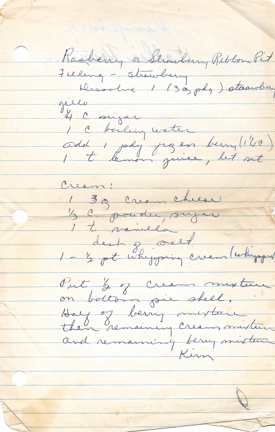 Rasberry or Strawberry Ribbon Pie
Filling - strawberry
Dissolve 1 (3 oz pkg) strawberry
jello
¼ C sugar
1 C boiling water
add 1 pkg frozen berry (1¼ C.)
1 t lemon juice, let set
Cream:
1 3 oz cream cheese
⅓ C. powder sugar
1 t vanilla
dash of salt
1 - ½ pt whipping cream (whipped)
Put ½ of cream mixture
on bottom pie shell.
Half of berry mixture
then remaining cream mixture
and remaining berry mixture
Kim